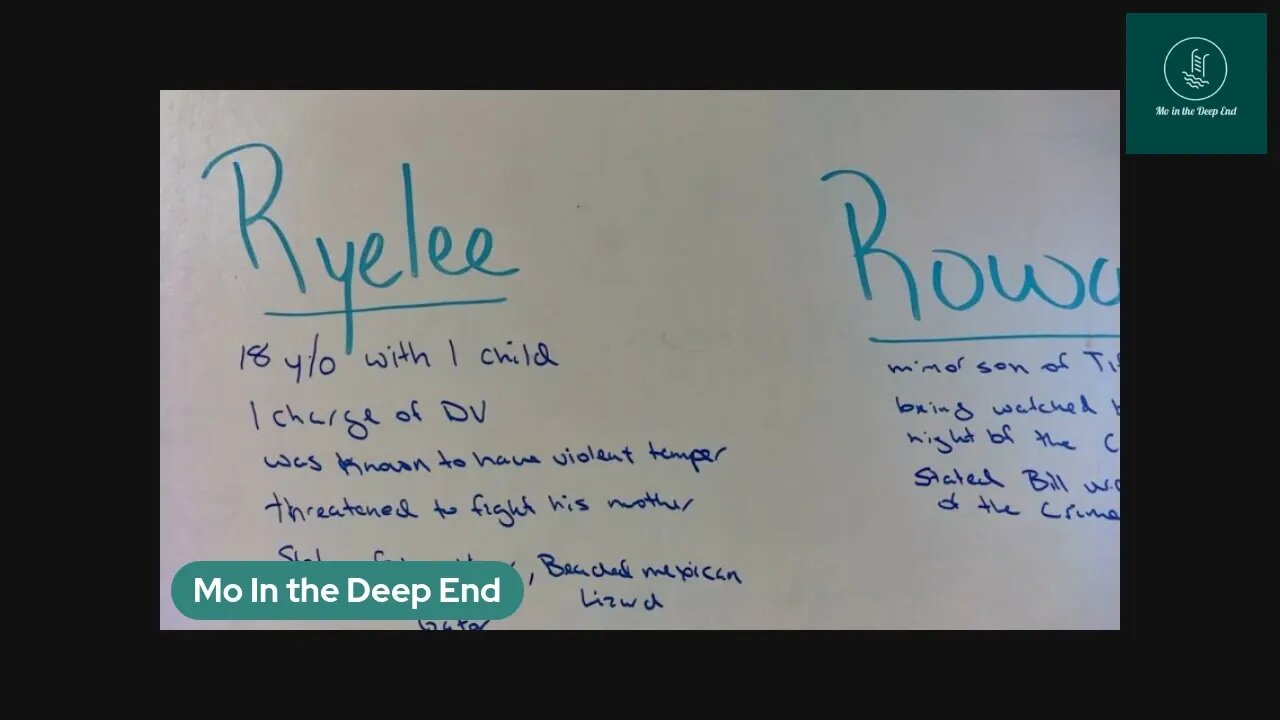 Mo in the Deep End
Ryelee
18 y/o with 1 child
1 charge of DV
was known to have violent temper
threatened to fight his mother
, Beaded mexican
Lizard
Rowa
minor son of Ti
being watched
night of the C
Stated Bill
of the Crime
Mo In the Deep End